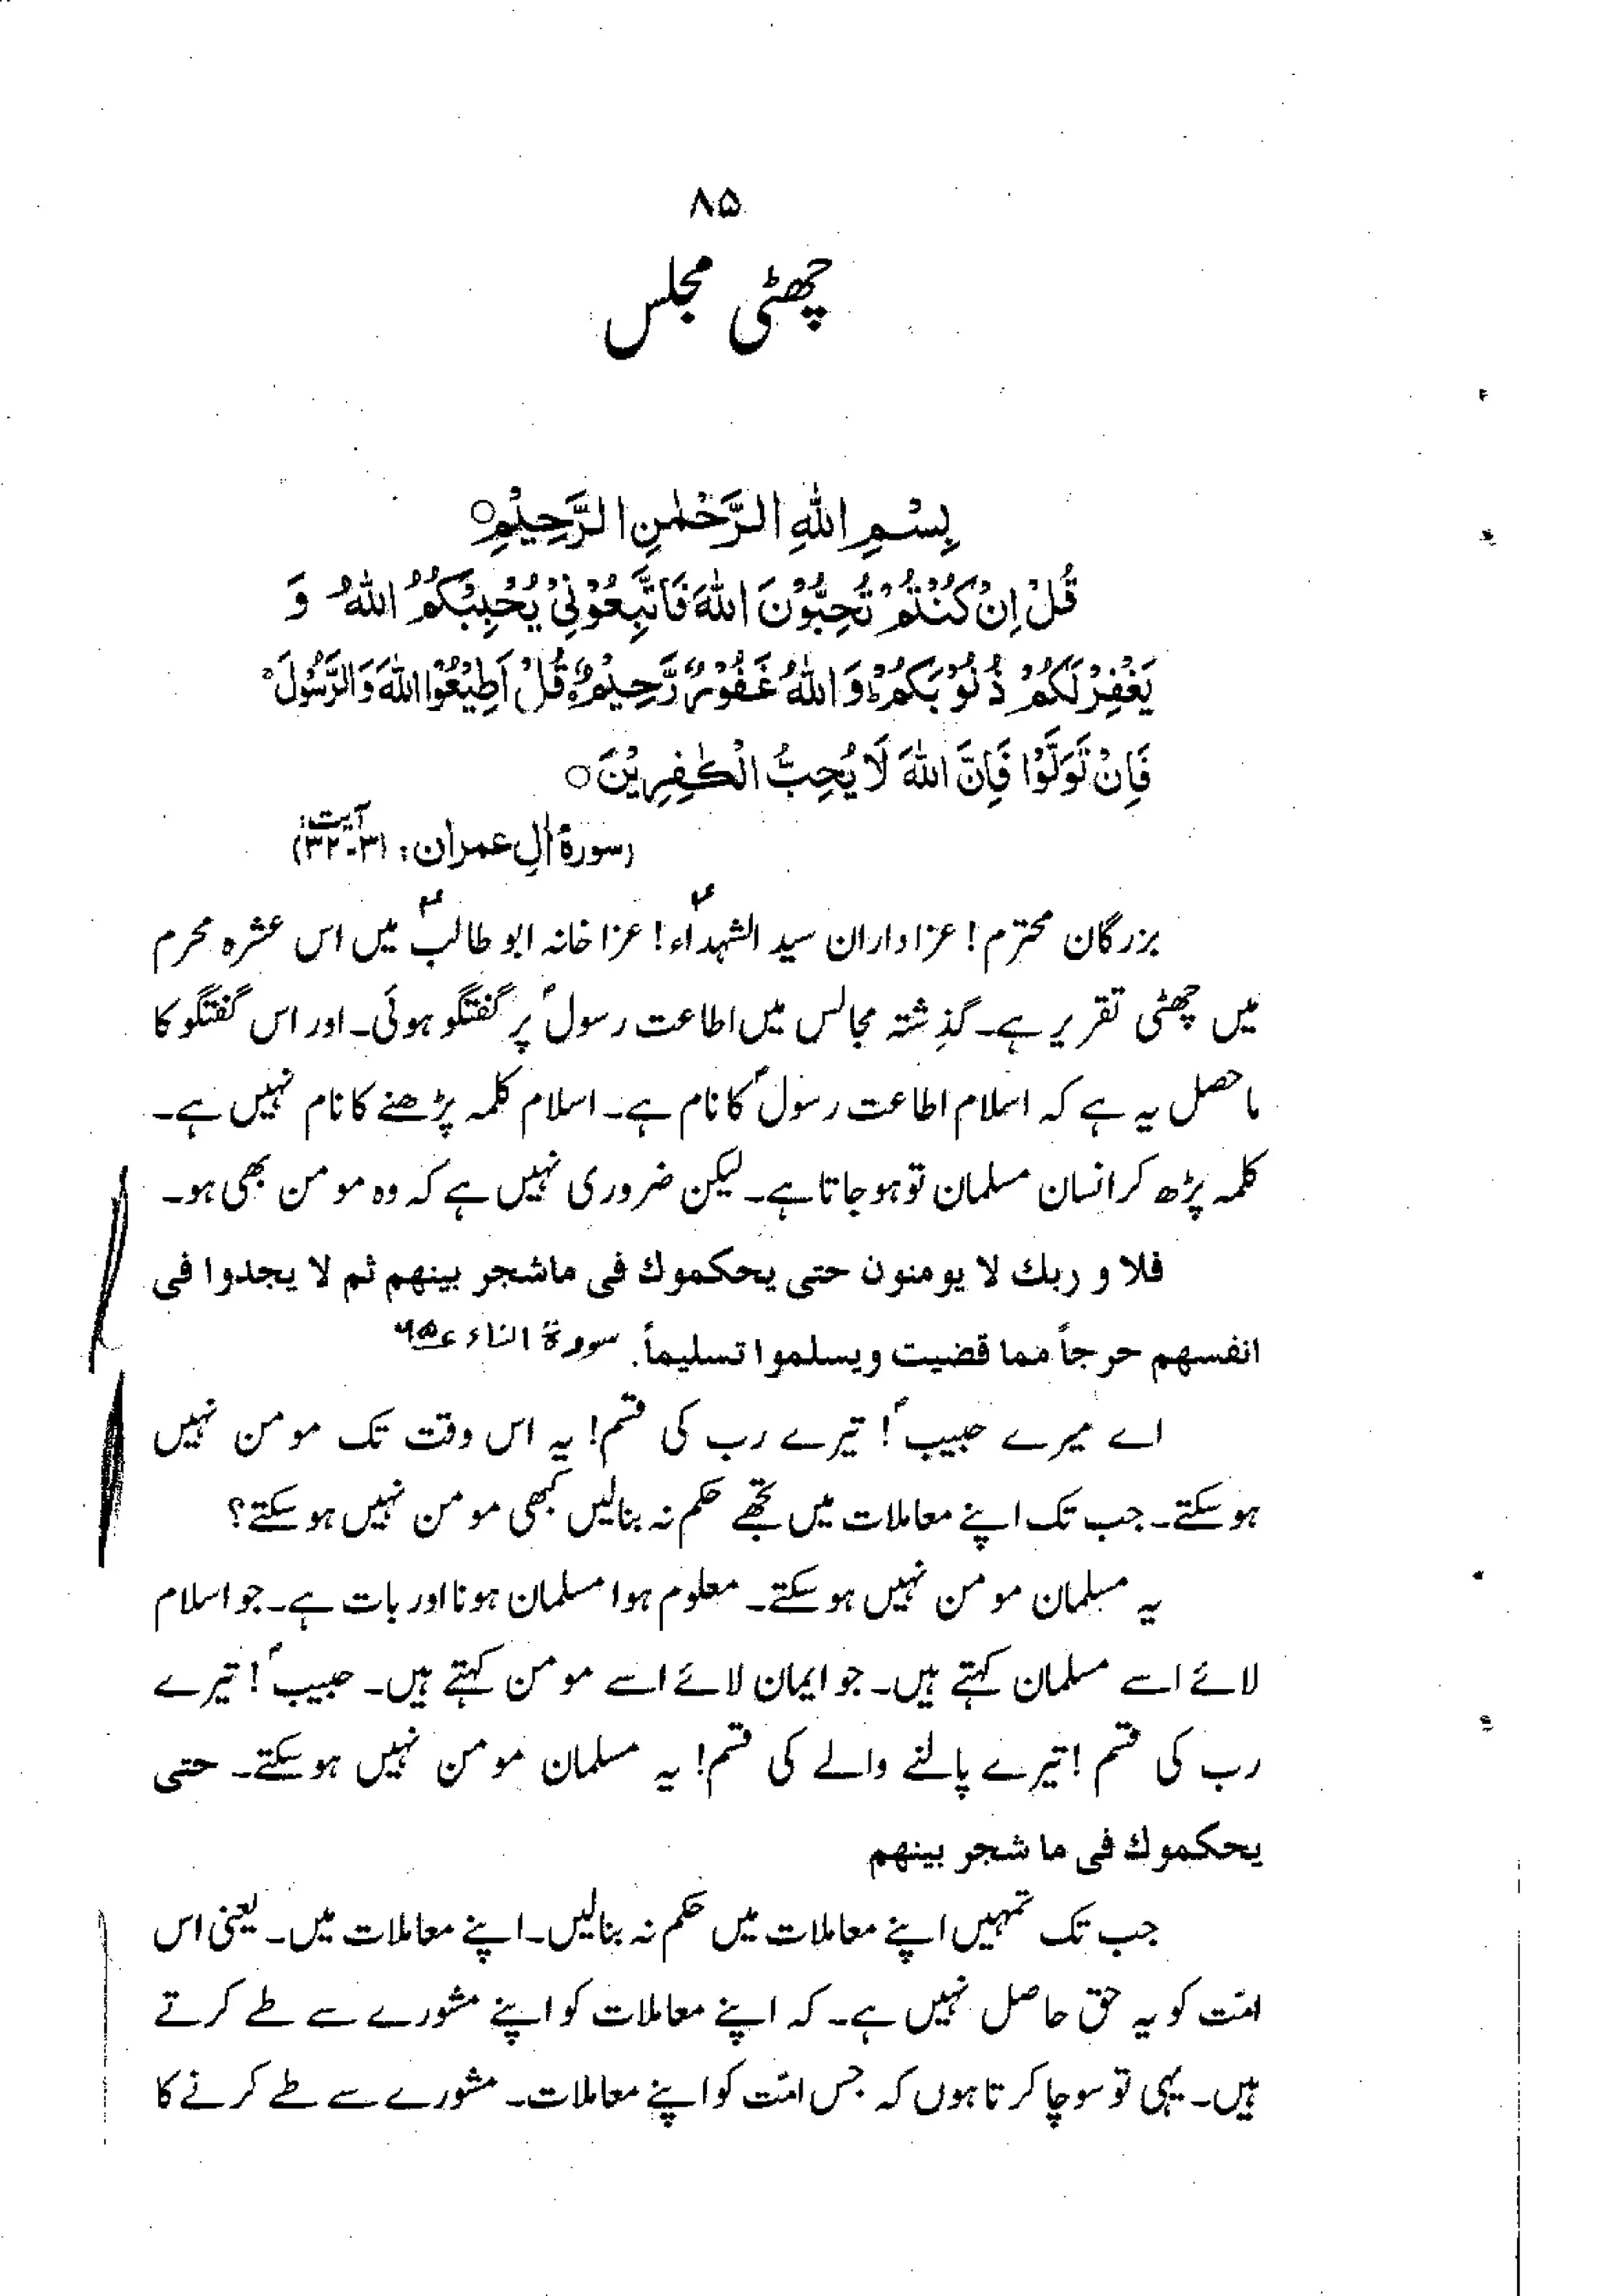 ۸۵
چھٹی مجلس
بِسْمِ اللّٰهِ الرَّحْمٰنِ الرَّحِيْمِ○
قُلْ اِنْ كُنْتُمْ تُحِبُّوْنَ اللّٰهَ فَاتَّبِعُوْنِيْ يُحْبِبْكُمُ اللّٰهُ وَ
يَغْفِرْ لَكُمْ ذُنُوْبَكُمْ ؕ وَ اللّٰهُ غَفُوْرٌ رَّحِيْمٌ ○ قُلْ اَطِيْعُوا اللّٰهَ وَ الرَّسُوْلَ ۚ
فَاِنْ تَوَلَّوْا فَاِنَّ اللّٰهَ لَا يُحِبُّ الْكٰفِرِيْنَ ○
(سورۃ اٰلِ عمران: آیت: ۳۱-۳۲)
بزرگان محترم! عزاداران سید الشہداءؑ! عزا خانہ ابو طالبؑ میں اس عشرہ محرم
میں چھٹی تقریر ہے۔ گذشتہ مجالس میں اطاعت رسولؐ پر گفتگو ہوئی۔ اور اس گفتگو کا
ماحصل یہ ہے کہ اسلام اطاعت رسولؐ کا نام ہے۔ اسلام کلمہ پڑھنے کا نام نہیں ہے۔
کلمہ پڑھ کر انسان مسلمان تو ہو جاتا ہے۔ لیکن ضروری نہیں ہے کہ وہ مومن بھی ہو۔
فلا و ربك لا يومنون حتى يحكموك فى ماشجر بينهم ثم لا يجدوا فى
انفسهم حرجاً مما قضيت ويسلموا تسليماً. سورۃ النساء ۶۵
اے میرے حبیبؐ! تیرے رب کی قسم! یہ اس وقت تک مومن نہیں
ہو سکتے۔ جب تک اپنے معاملات میں تجھے حکم نہ بنا لیں کبھی مومن نہیں ہو سکتے؟
یہ مسلمان مومن نہیں ہو سکتے۔ معلوم ہوا مسلمان ہونا اور بات ہے۔ جو اسلام
لائے اسے مسلمان کہتے ہیں۔ جو ایمان لائے اسے مومن کہتے ہیں۔ حبیبؐ! تیرے
رب کی قسم! تیرے پالنے والے کی قسم! یہ مسلمان مومن نہیں ہو سکتے۔ حتى
يحكموك فى ما شجر بينهم
جب تک تمہیں اپنے معاملات میں حکم نہ بنا لیں۔ اپنے معاملات میں۔ یعنی اس
امّت کو یہ حق حاصل نہیں ہے۔ کہ اپنے معاملات کو اپنے مشورے سے طے کرتے
ہیں۔ یہی تو سوچا کرتا ہوں کہ جس امّت کو اپنے معاملات۔ مشورے سے طے کرنے کا